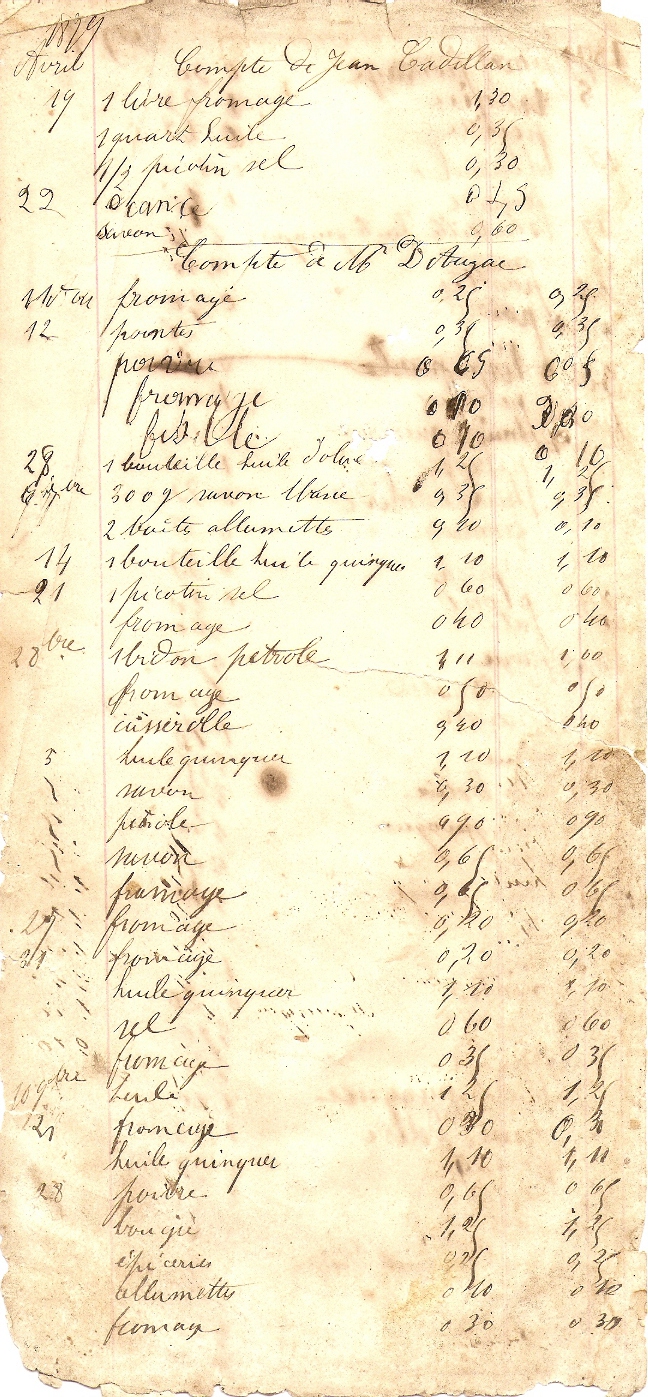 1879
Avril Compte de Jean Cadillan
19 1 livre fromage 1,30
1 quart huile 0,35
1/2 picotin sel 0,30
22
savon 0,60
Compte de Mr D'Augac
fromage 0,25 0,25
12 pointes 0,35 0,35
poivre 0 65 0
fromage
ficelle 0 10 0 10
28 1 bouteille huile d'olive 1,25 1,25
300g savon blanc 0,35 0,35
2 boîts allumetts 0,10 0,10
14 1 bouteille huile quinquer 1,10 1,10
21 1 picotin sel 0 60 0 60
fromage 0 40 0 40
1 bidon pétrole 1,00
fromage 0 50 0 50
cusserolle 0,40 0 40
5 huile quinquer 1,10 1,10
" savon 0,30 0,30
" pétrole 0 90 0 90
" savon 0,65 0,65
" fromage 0,65 0 65
fromage 0,20 0,20
31 fromage 0,20 0,20
huile quinquer 1,10 1,10
sel 0 60 0 60
fromage 0 35 0 35
huile 1 25 1,25
12 fromage 0 30 0,3
huile quinquer 1,10 1,10
28 poivre 0,65 0 65
bougie 1,25 1,25
épiceries 0,25 0,25
allumetts 0 10 0 10
fromage 0 30 0 30